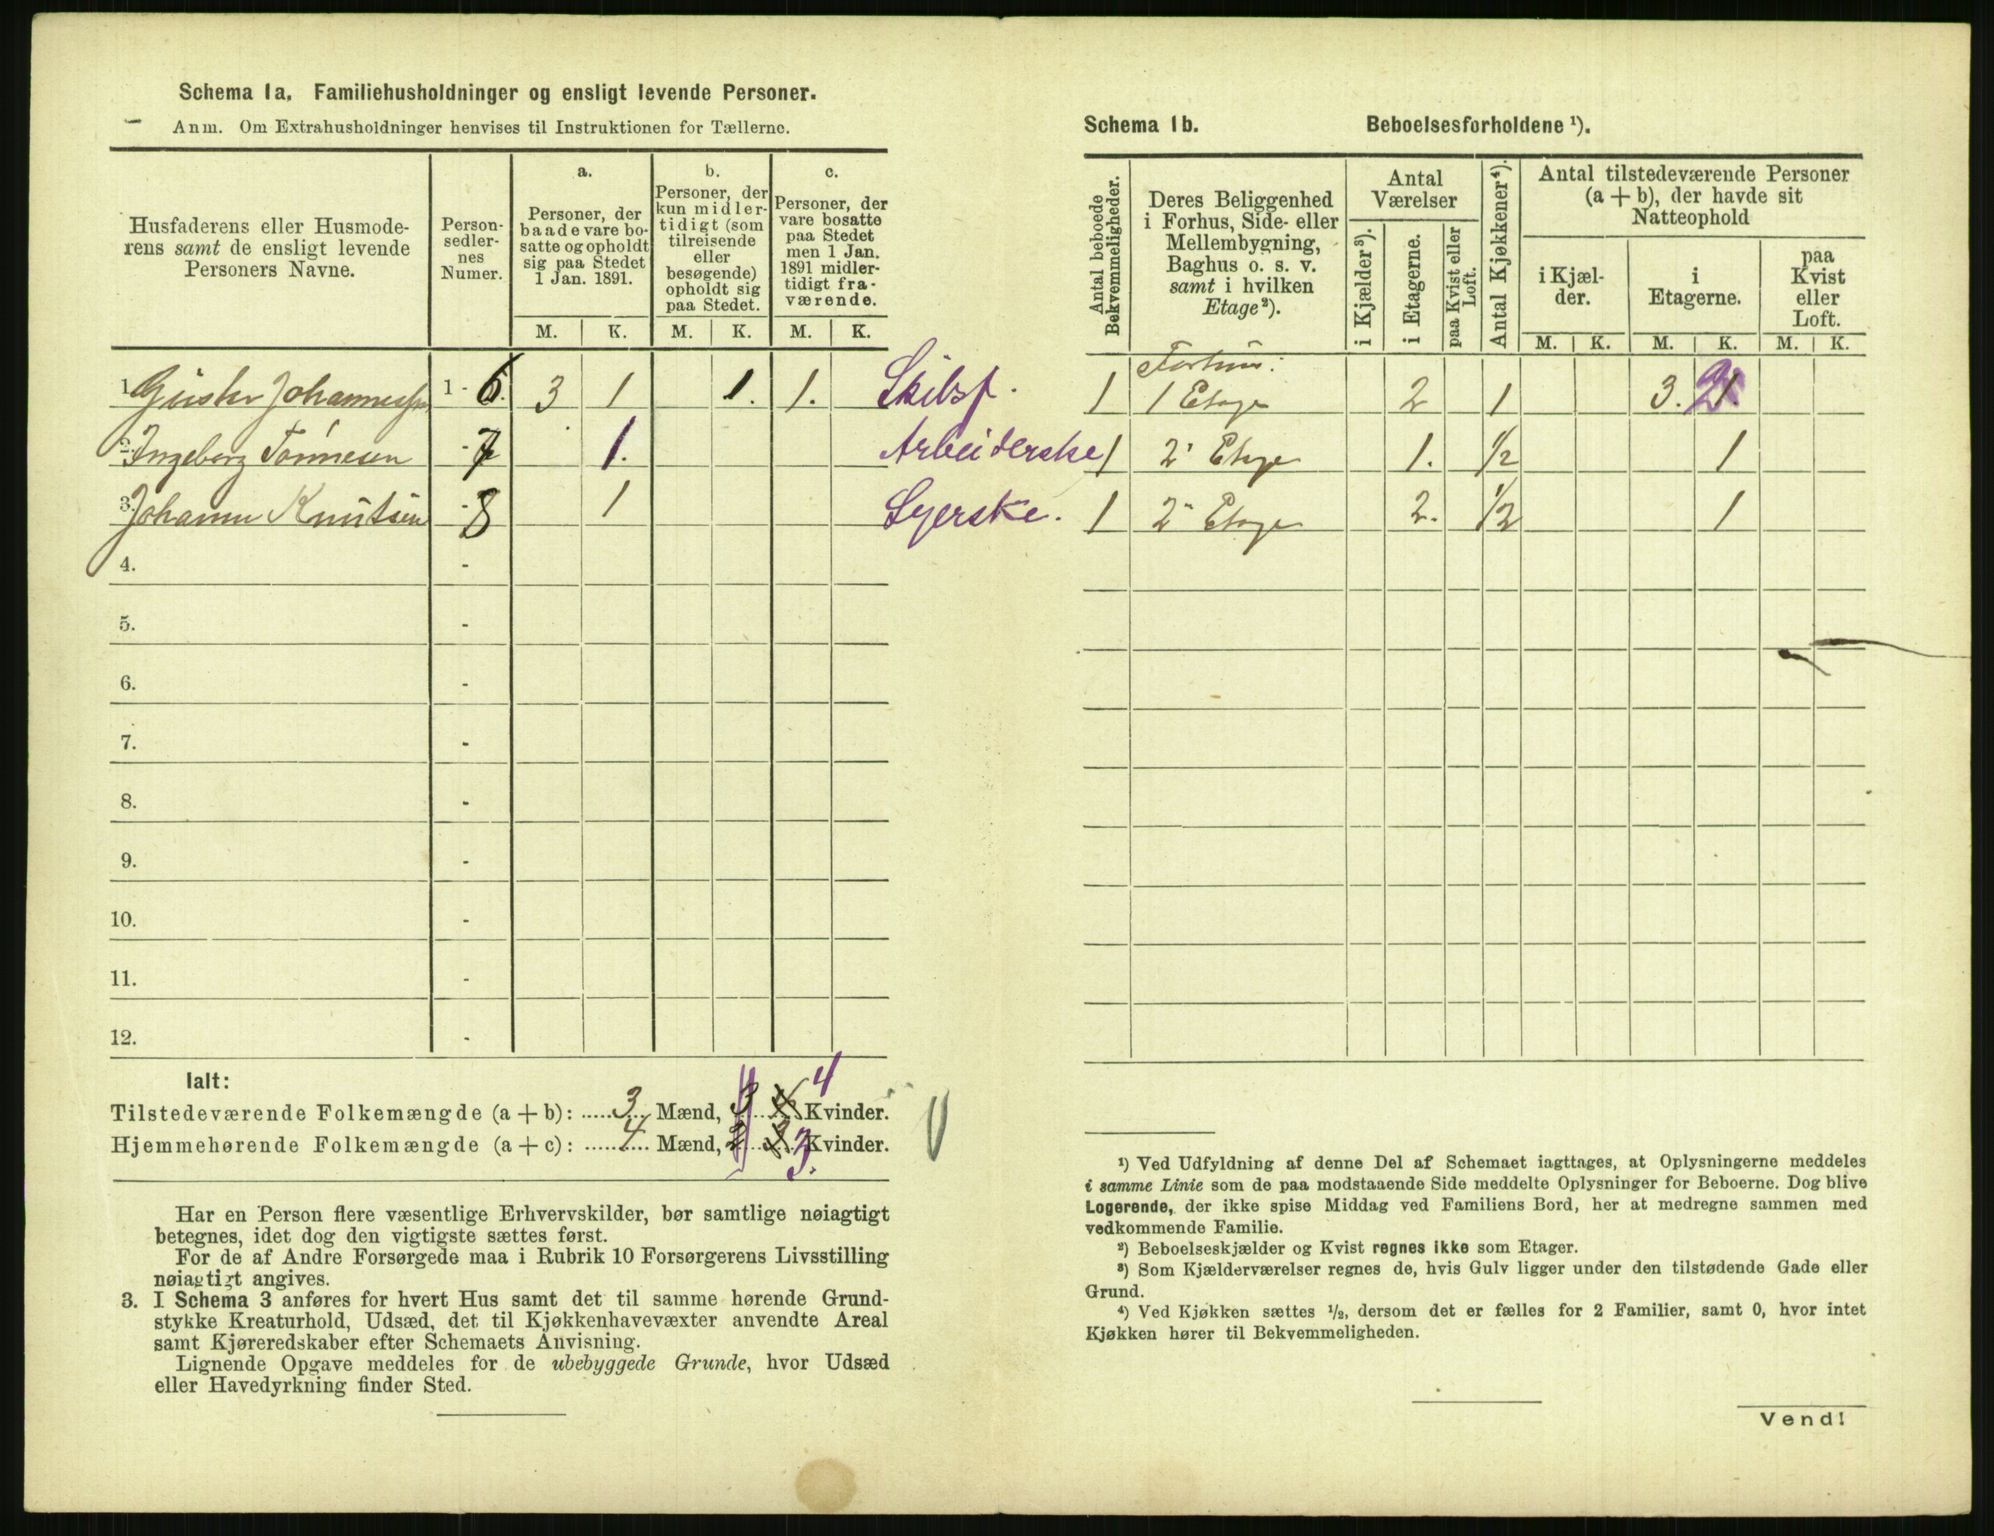 Schema 1a. Familiehusholdninger og ensligt levende Personer.
Anm. Om Extrahusholdninger henvises til Instruktionen for Tællerne.
Husfaderens eller Husmoderens samt de ensligt levende Personers Navne.
Personsedlernes Numer.
a.
Personer, der baade vare bosatte og opholdt sig paa Stedet 1 Jan. 1891.
b.
Personer, der kun midlertidigt (som tilreisende eller besøgende) opholdt sig paa Stedet.
c.
Personer, der vare bosatte paa Stedet men 1 Jan. 1891 midlertidigt fraværende.
M. K. M. K. M. K.
1. Johannessen 1 - 6. 3 1 1. 1. Skibsf.
2. Ingeborg Tønnesen - 7 1. Arbeiderske
3. Johanne Knutsen - 8 1 Syerske.
4. -
5. -
6. -
7. -
8. -
9. -
10. -
11. -
12. -
Ialt:
Tilstedeværende Folkemængde (a + b): 3 Mænd, 3 4 4 Kvinder.
Hjemmehørende Folkemængde (a + c): 4 Mænd, 2 3 3. Kvinder.
Har en Person flere væsentlige Erhvervskilder, bør samtlige nøiagtigt
betegnes, idet dog den vigtigste sættes først.
For de af Andre Forsørgede maa i Rubrik 10 Forsørgerens Livsstilling
nøiagtigt angives.
3. I Schema 3 anføres for hvert Hus samt det til samme hørende Grund-
stykke Kreaturhold, Udsæd, det til Kjøkkenhavevæxter anvendte Areal
samt Kjøreredskaber efter Schemaets Anvisning.
Lignende Opgave meddeles for de ubebyggede Grunde, hvor Udsæd
eller Havedyrkning finder Sted.
Schema 1b. Beboelsesforholdene ¹).
Antal beboede Bekvemmeligheder.
Deres Beliggenhed i Forhus, Side- eller Mellembygning, Baghus o. s. v. samt i hvilken Etage²).
Antal Værelser
i Kjælder³).
i Etagerne.
paa Kvist eller Loft.
Antal Kjøkkener⁴).
Antal tilstedeværende Personer (a + b), der havde sit Natteophold
i Kjælder.
i Etagerne.
paa Kvist eller Loft.
M. K. M. K. M. K.
Forhus:
1 1 Etage 2 1 3. 2
1 2' Etage 1. ½ 1
1 2" Etage 2. ½ 1
¹) Ved Udfyldning af denne Del af Schemaet iagttages, at Oplysningerne meddeles
i samme Linie som de paa modstaaende Side meddelte Oplysninger for Beboerne. Dog blive
Logerende, der ikke spise Middag ved Familiens Bord, her at medregne sammen med
vedkommende Familie.
²) Beboelseskjælder og Kvist regnes ikke som Etager.
³) Som Kjælderværelser regnes de, hvis Gulv ligger under den tilstødende Gade eller
Grund.
⁴) Ved Kjøkken sættes ½, dersom det er fælles for 2 Familier, samt 0, hvor intet
Kjøkken hører til Bekvemmeligheden.
Vend!